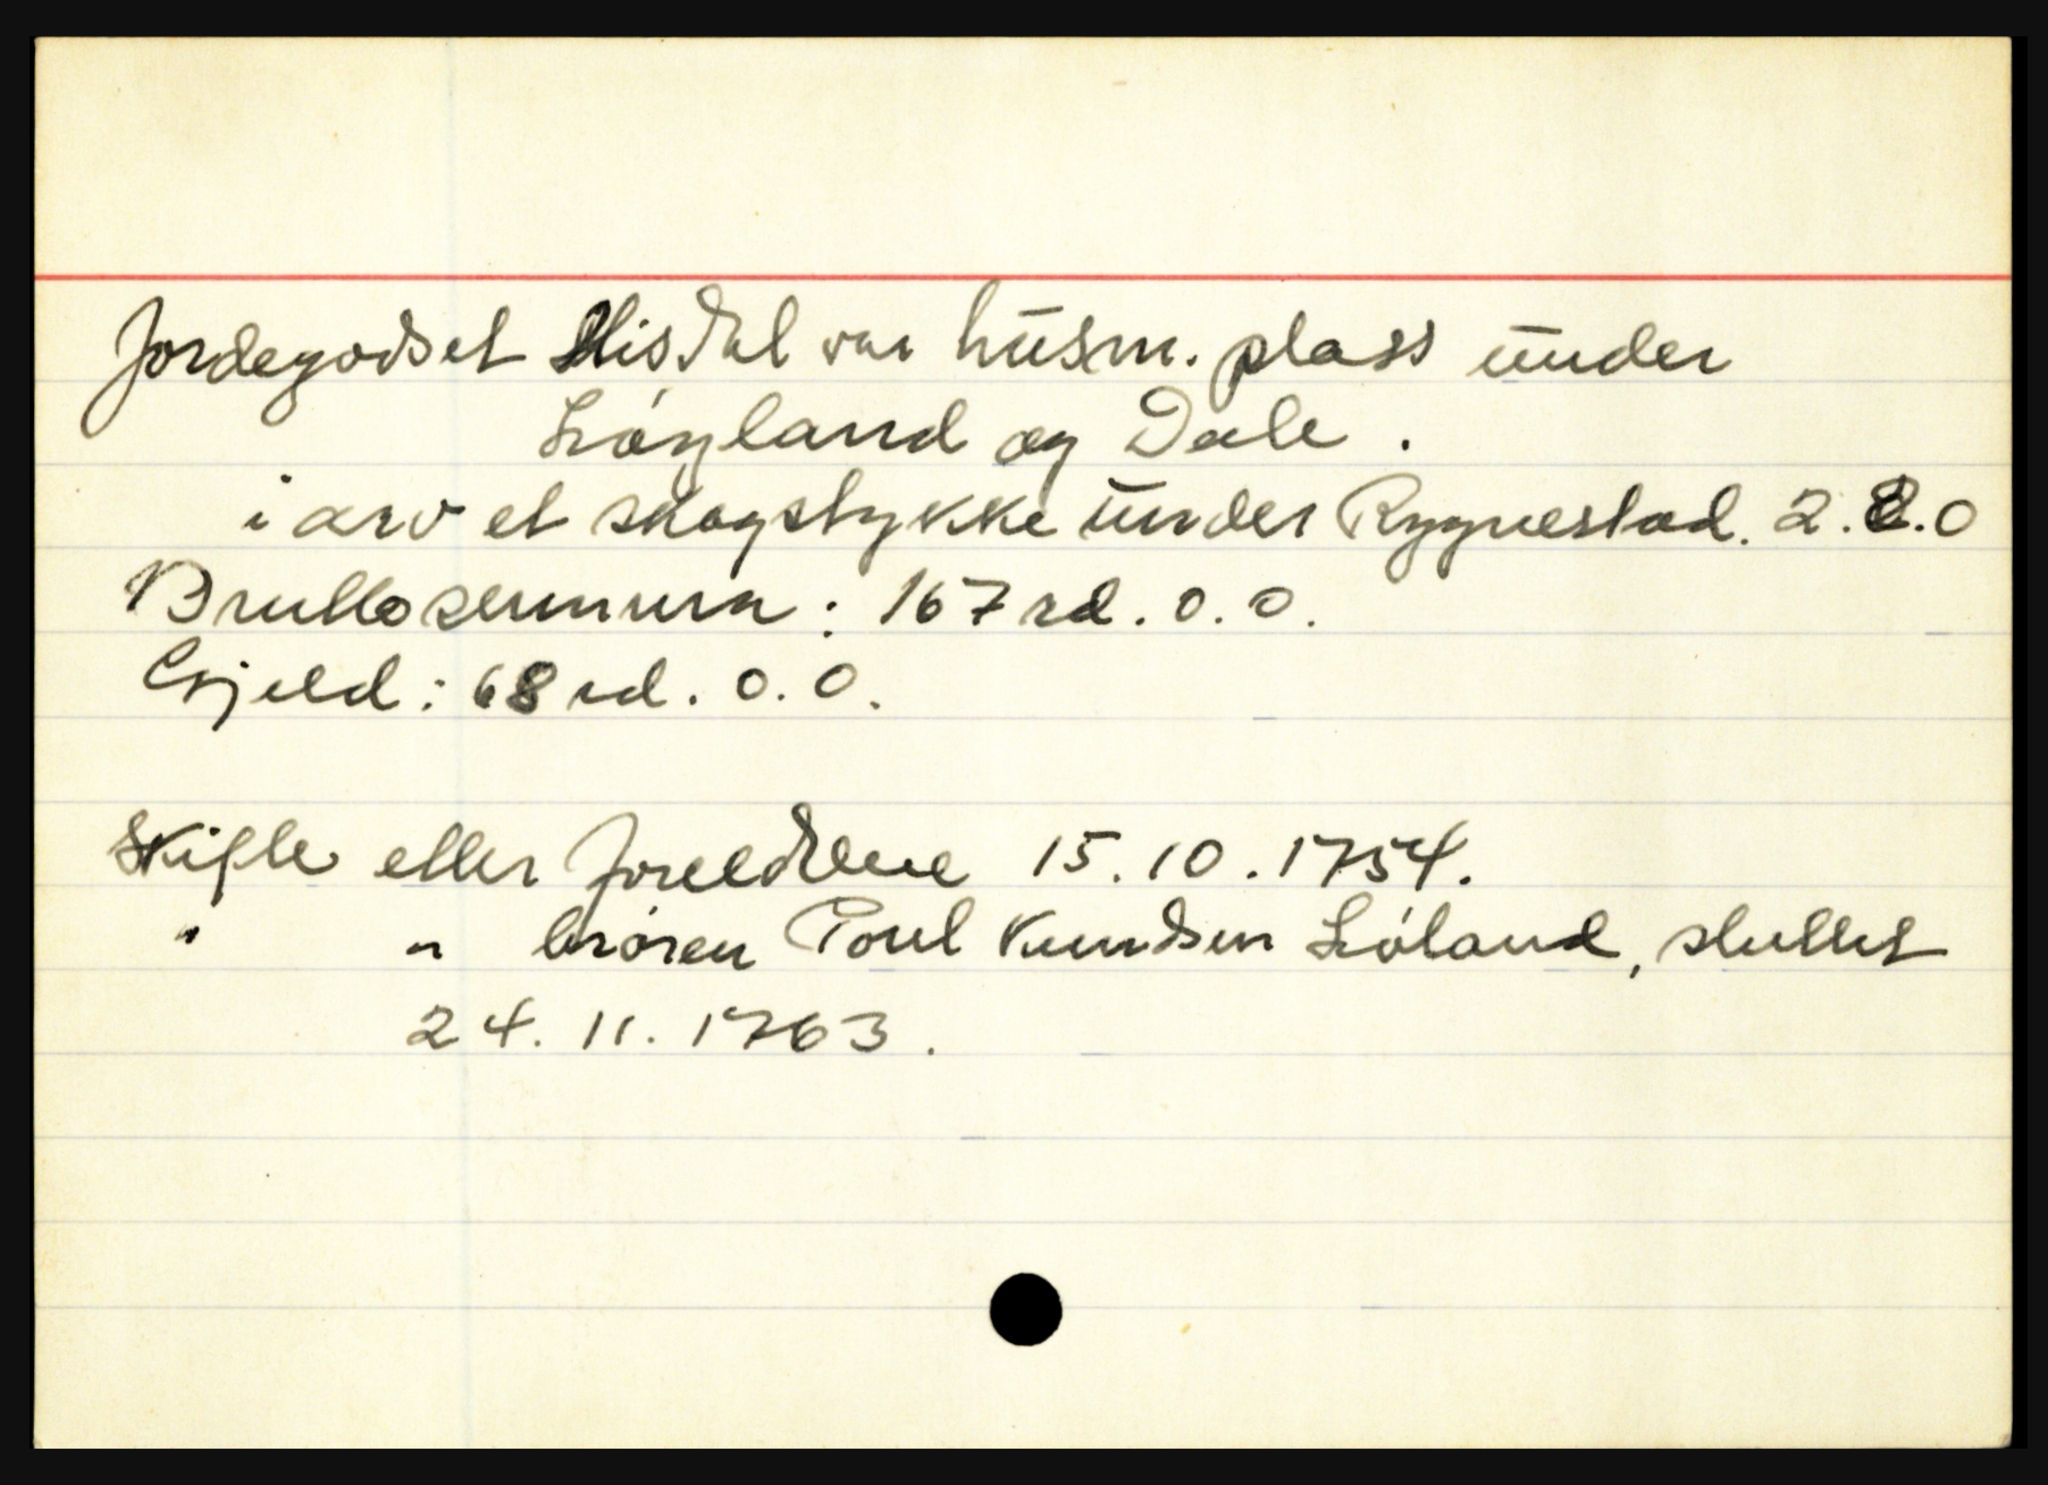 Jordegodset Hisdal var husm. plass under
Løyland og Dale.
i arv et skogstykke under Rygnestad. 2.2.0
Bruttosummen: 167 rd. 0. 0.
Gjeld: 68 rd. 0. 0.
Skifte etter foreldrene 15.10.1754.
" " broren Poul Knudsen Løland, sluttet
24. 11. 1763.